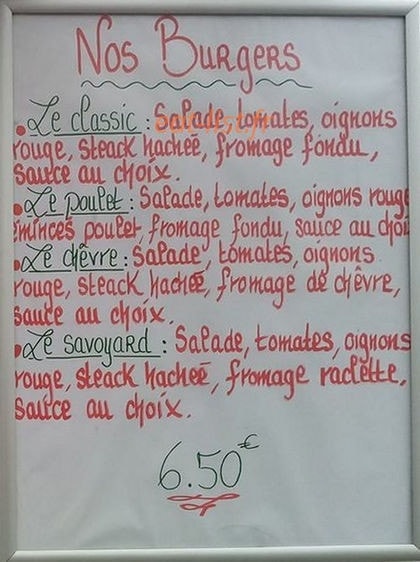 Nos Burgers
• Le classic : Salade, tomates, oignons
rouge, steack hachée, fromage fondu,
sauce au choix.
• Le poulet : Salade, tomates, oignons rouge
émincés poulet, fromage fondu, sauce au choix
• Le chêvre : Salade, tomates, oignons
rouge, steack hachée, fromage de chêvre,
sauce au choix.
• Le savoyard : Salade, tomates, oignons
rouge, steack hacheé, fromage raclette,
sauce au choix.
6.50€